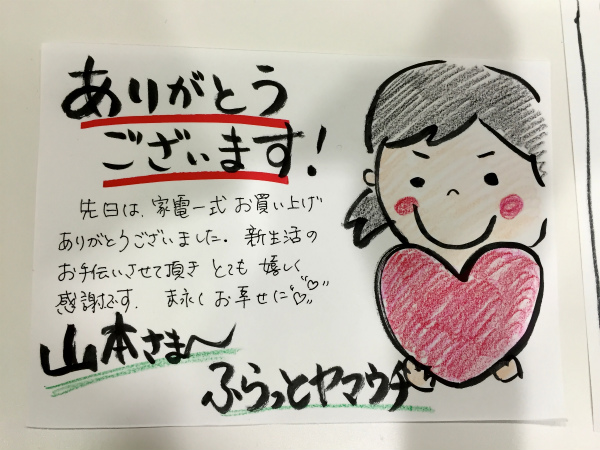 ありがとう
ございます!
先日は、家電一式お買い上げ
ありがとうございました。新生活の
お手伝いさせて頂きとても嬉しく
感謝です。末永くお幸せに♡♡
山本さま〜
ふらっとヤマウチ